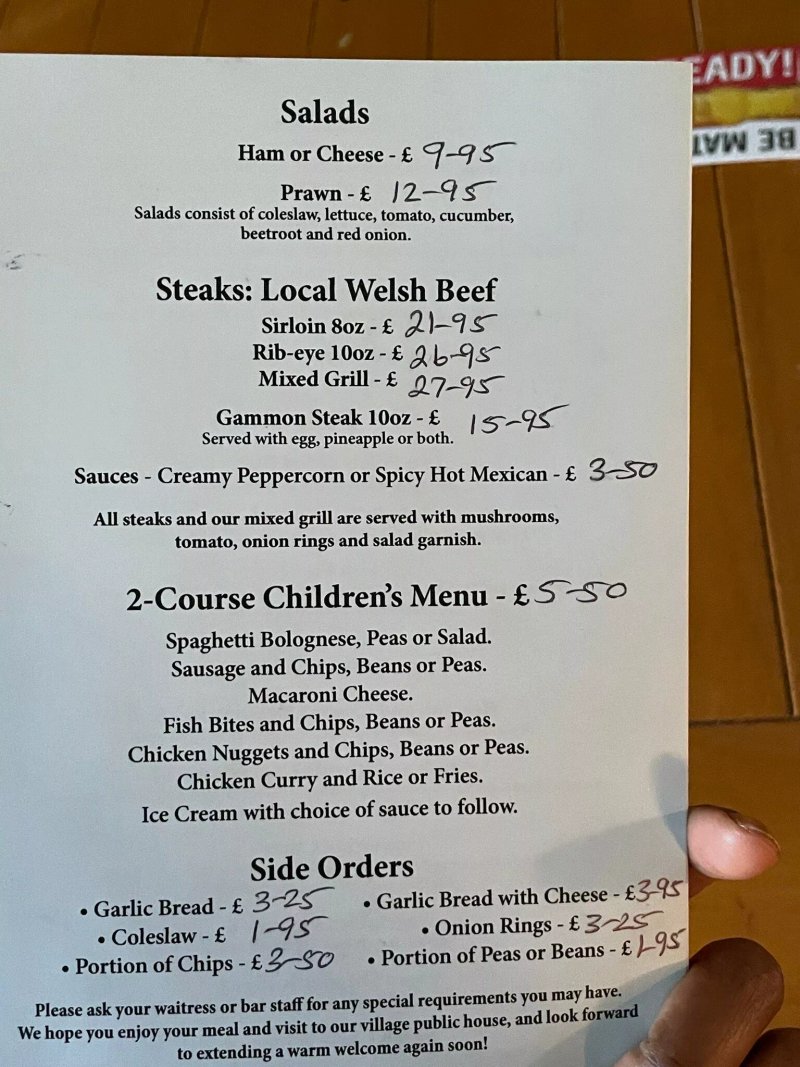 EADY!
BE MAT
Salads
Ham or Cheese - £ 9-95
Prawn - £ 12-95
Salads consist of coleslaw, lettuce, tomato, cucumber,
beetroot and red onion.
Steaks: Local Welsh Beef
Sirloin 8oz - £ 21-95
Rib-eye 10oz - £ 26-95
Mixed Grill - £ 27-95
Gammon Steak 10oz - £ 15-95
Served with egg, pineapple or both.
Sauces - Creamy Peppercorn or Spicy Hot Mexican - £ 3-50
All steaks and our mixed grill are served with mushrooms,
tomato, onion rings and salad garnish.
2-Course Children's Menu - £ 5-50
Spaghetti Bolognese, Peas or Salad.
Sausage and Chips, Beans or Peas.
Macaroni Cheese.
Fish Bites and Chips, Beans or Peas.
Chicken Nuggets and Chips, Beans or Peas.
Chicken Curry and Rice or Fries.
Ice Cream with choice of sauce to follow.
Side Orders
• Garlic Bread - £ 3-25 • Garlic Bread with Cheese - £3-95
• Coleslaw - £ 1-95 • Onion Rings - £3-25
• Portion of Chips - £3-50 • Portion of Peas or Beans - £1-95
Please ask your waitress or bar staff for any special requirements you may have.
We hope you enjoy your meal and visit to our village public house, and look forward
to extending a warm welcome again soon!